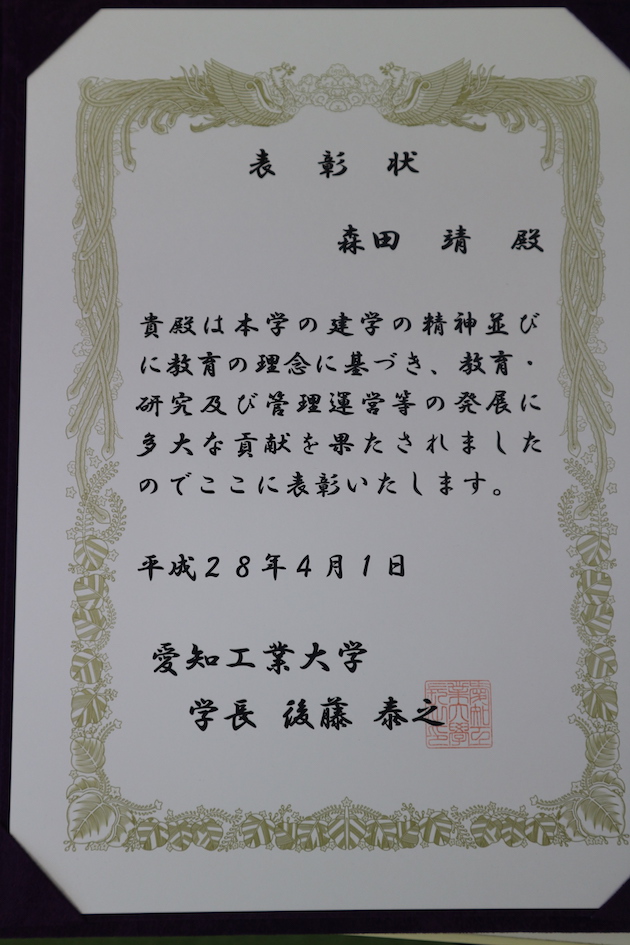 表彰状
森田 靖 殿
貴殿は本学の建学の精神並び
に教育の理念に基づき、教育・
研究及び管理運営等の発展に
多大な貢献を果たされました
のでここに表彰いたします。
平成28年4月1日
愛知工業大学
学長 後藤 泰之